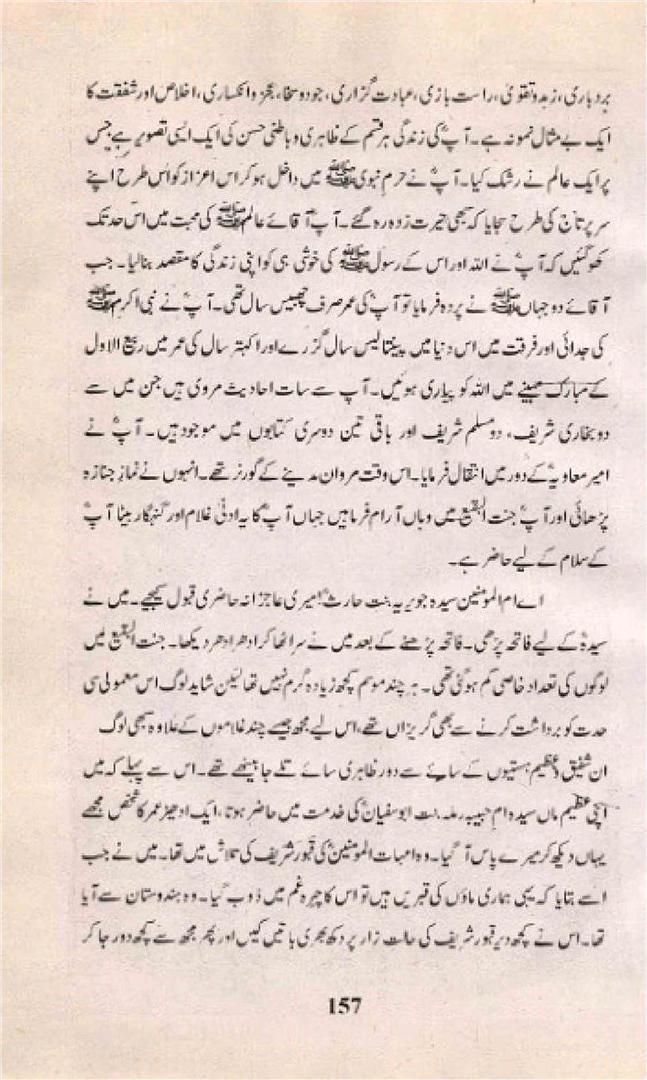 بردباری، زہد و تقویٰ، راست بازی، عبادت گزاری، جود و سخا، عجز و انکساری، اخلاص اور شفقت کا
ایک بے مثال نمونہ ہے۔ آپؓ کی زندگی ہر قسم کے ظاہری و باطنی حسن کی ایک ایسی تصویر ہے جس
پر ایک عالم نے رشک کیا۔ آپؓ نے حرمِ نبوی ﷺ میں داخل ہو کر اس اعزاز کو اس طرح اپنے
سر پر تاج کی طرح سجایا کہ سبھی حیرت زدہ رہ گئے۔ آپؓ آقائے عالم ﷺ کی محبت میں اس حد تک
کھو گئیں کہ آپؓ نے اللہ اور اس کے رسول ﷺ کی خوشی ہی کو اپنی زندگی کا مقصد بنا لیا۔ جب
آقائے دو جہاں ﷺ نے پردہ فرمایا تو آپؓ کی عمر صرف چھبیس سال تھی۔ آپؓ نے نبی اکرم ﷺ
کی جدائی اور فرقت میں اس دنیا میں پینتالیس سال گزرے اور اکہتر سال کی عمر میں ربیع الاول
کے مبارک مہینے میں اللہ کو پیاری ہوئیں۔ آپ سے سات احادیث مروی ہیں جن میں سے
دو بخاری شریف، دو مسلم شریف اور باقی تین دوسری کتابوں میں موجود ہیں۔ آپؓ نے
امیر معاویہؓ کے دور میں انتقال فرمایا۔ اس وقت مروان مدینے کے گورنر تھے۔ انہوں نے نماز جنازہ
پڑھائی اور آپؓ جنت البقیع میں وہاں آرام فرما ہیں جہاں آپؓ کا یہ ادنیٰ غلام اور گنہگار بیٹا آپؓ
کے سلام کے لیے حاضر ہے۔
اے ام المومنین سیدہ جویریہ بنت حارثؓ! میری عاجزانہ حاضری قبول کیجیے۔ میں نے
سیدہؓ کے لیے فاتحہ پڑھی۔ فاتحہ پڑھنے کے بعد میں نے سر اٹھا کر ادھر ادھر دیکھا۔ جنت البقیع میں
لوگوں کی تعداد خاصی کم ہو گئی تھی۔ ہر چند موسم کچھ زیادہ گرم نہیں تھا لیکن شاید لوگ اس معمولی سی
حدت کو برداشت کرنے سے بھی گریزاں تھے، اس لیے مجھ جیسے چند غلاموں کے علاوہ سبھی لوگ
ان شفیق و عظیم ہستیوں کے سائے سے دور ظاہری سائے تلے جا بیٹھے تھے۔ اس سے پہلے کہ میں
اپنی عظیم ماں سیدہ ام حبیبہ رملہ بنت ابوسفیانؓ کی خدمت میں حاضر ہوتا، ایک ادھیڑ عمر کا شخص مجھے
یہاں دیکھ کر میرے پاس آ گیا۔ وہ امہات المومنینؓ کی قبور شریف کی تلاش میں تھا۔ میں نے جب
اسے بتایا کہ یہی ہماری ماؤں کی قبریں ہیں تو اس کا چہرہ غم میں ڈوب گیا۔ وہ ہندوستان سے آیا
تھا۔ اس نے کچھ دیر قبور شریف کی حالت زار پر دکھ بھری باتیں کیں اور پھر مجھ سے کچھ دور جا کر
157